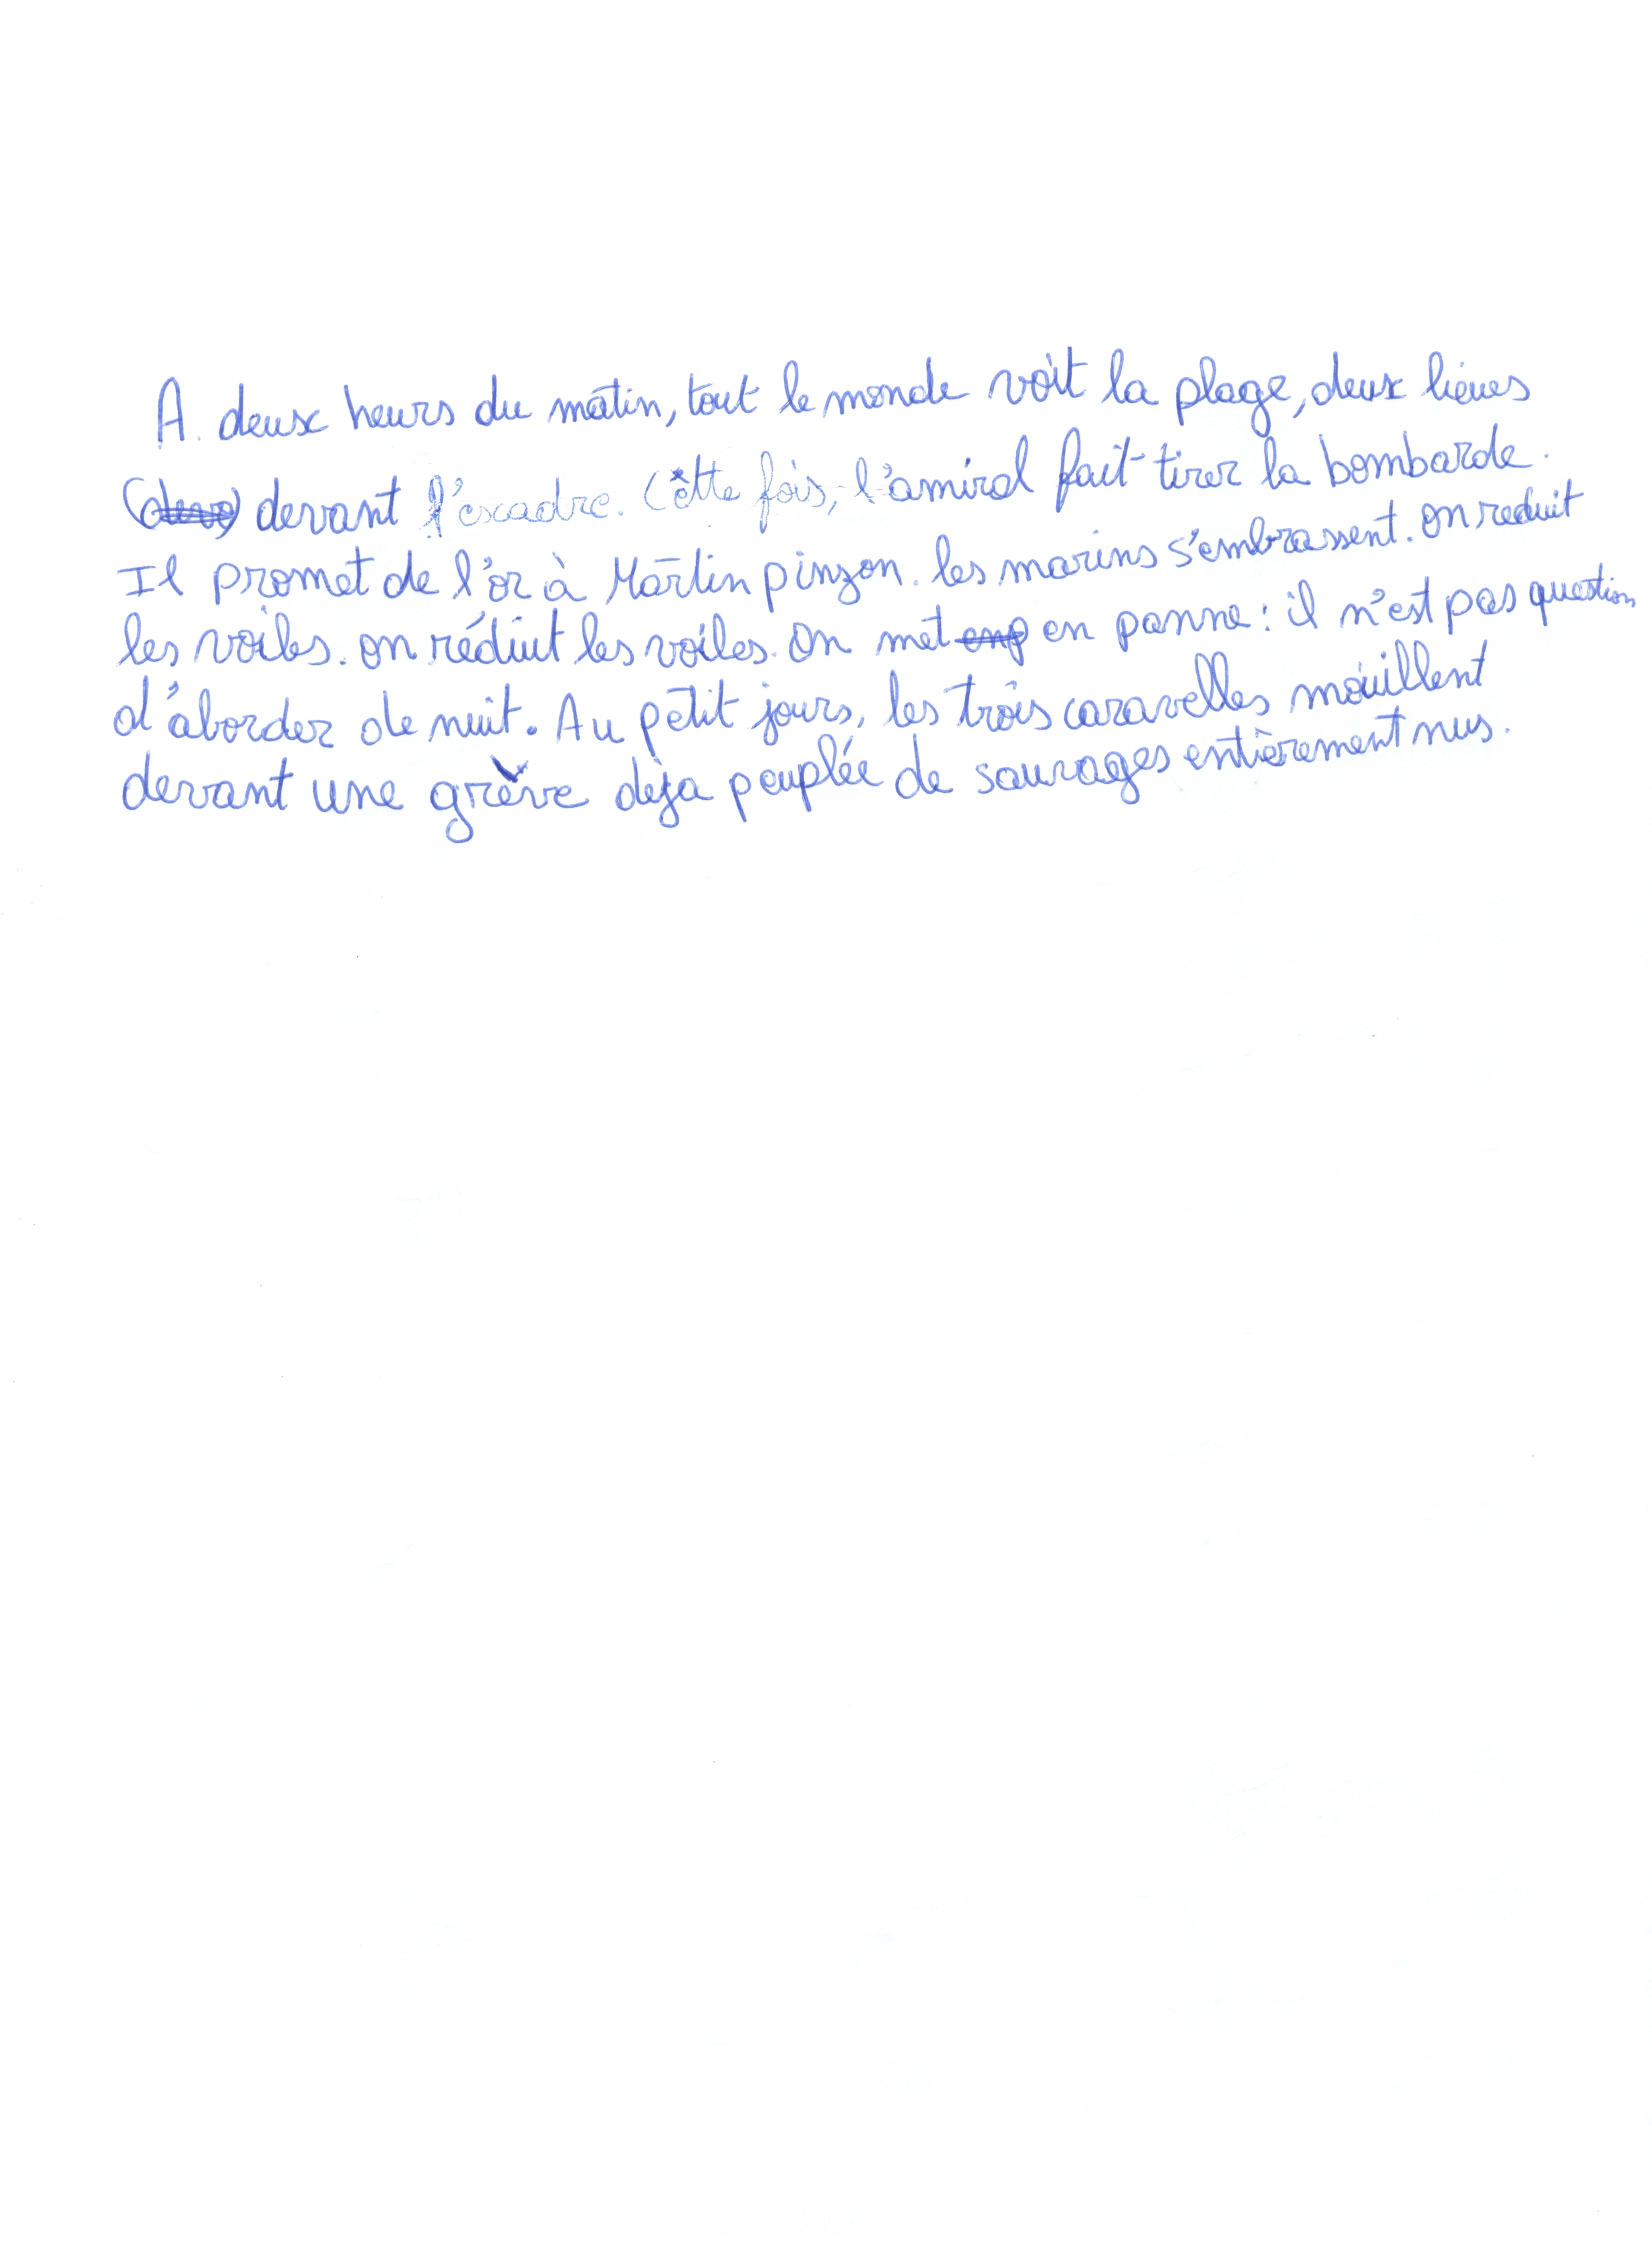 A deux heurs du matin, tout le monde voit la plage, deux lieues
devant l'escadre. Cette fois, l'amiral fait tirer la bombarde.
Il promet de l'or à Martin pinzon. les marins s'embrassent. on reduit
les voiles. on réduit les voiles. On met en panne : il n'est pas question
d'aborder de nuit. Au petit jours, les trois caravelles mouillent
devant une grève dèja peuplée de sauvages entièrement nus.